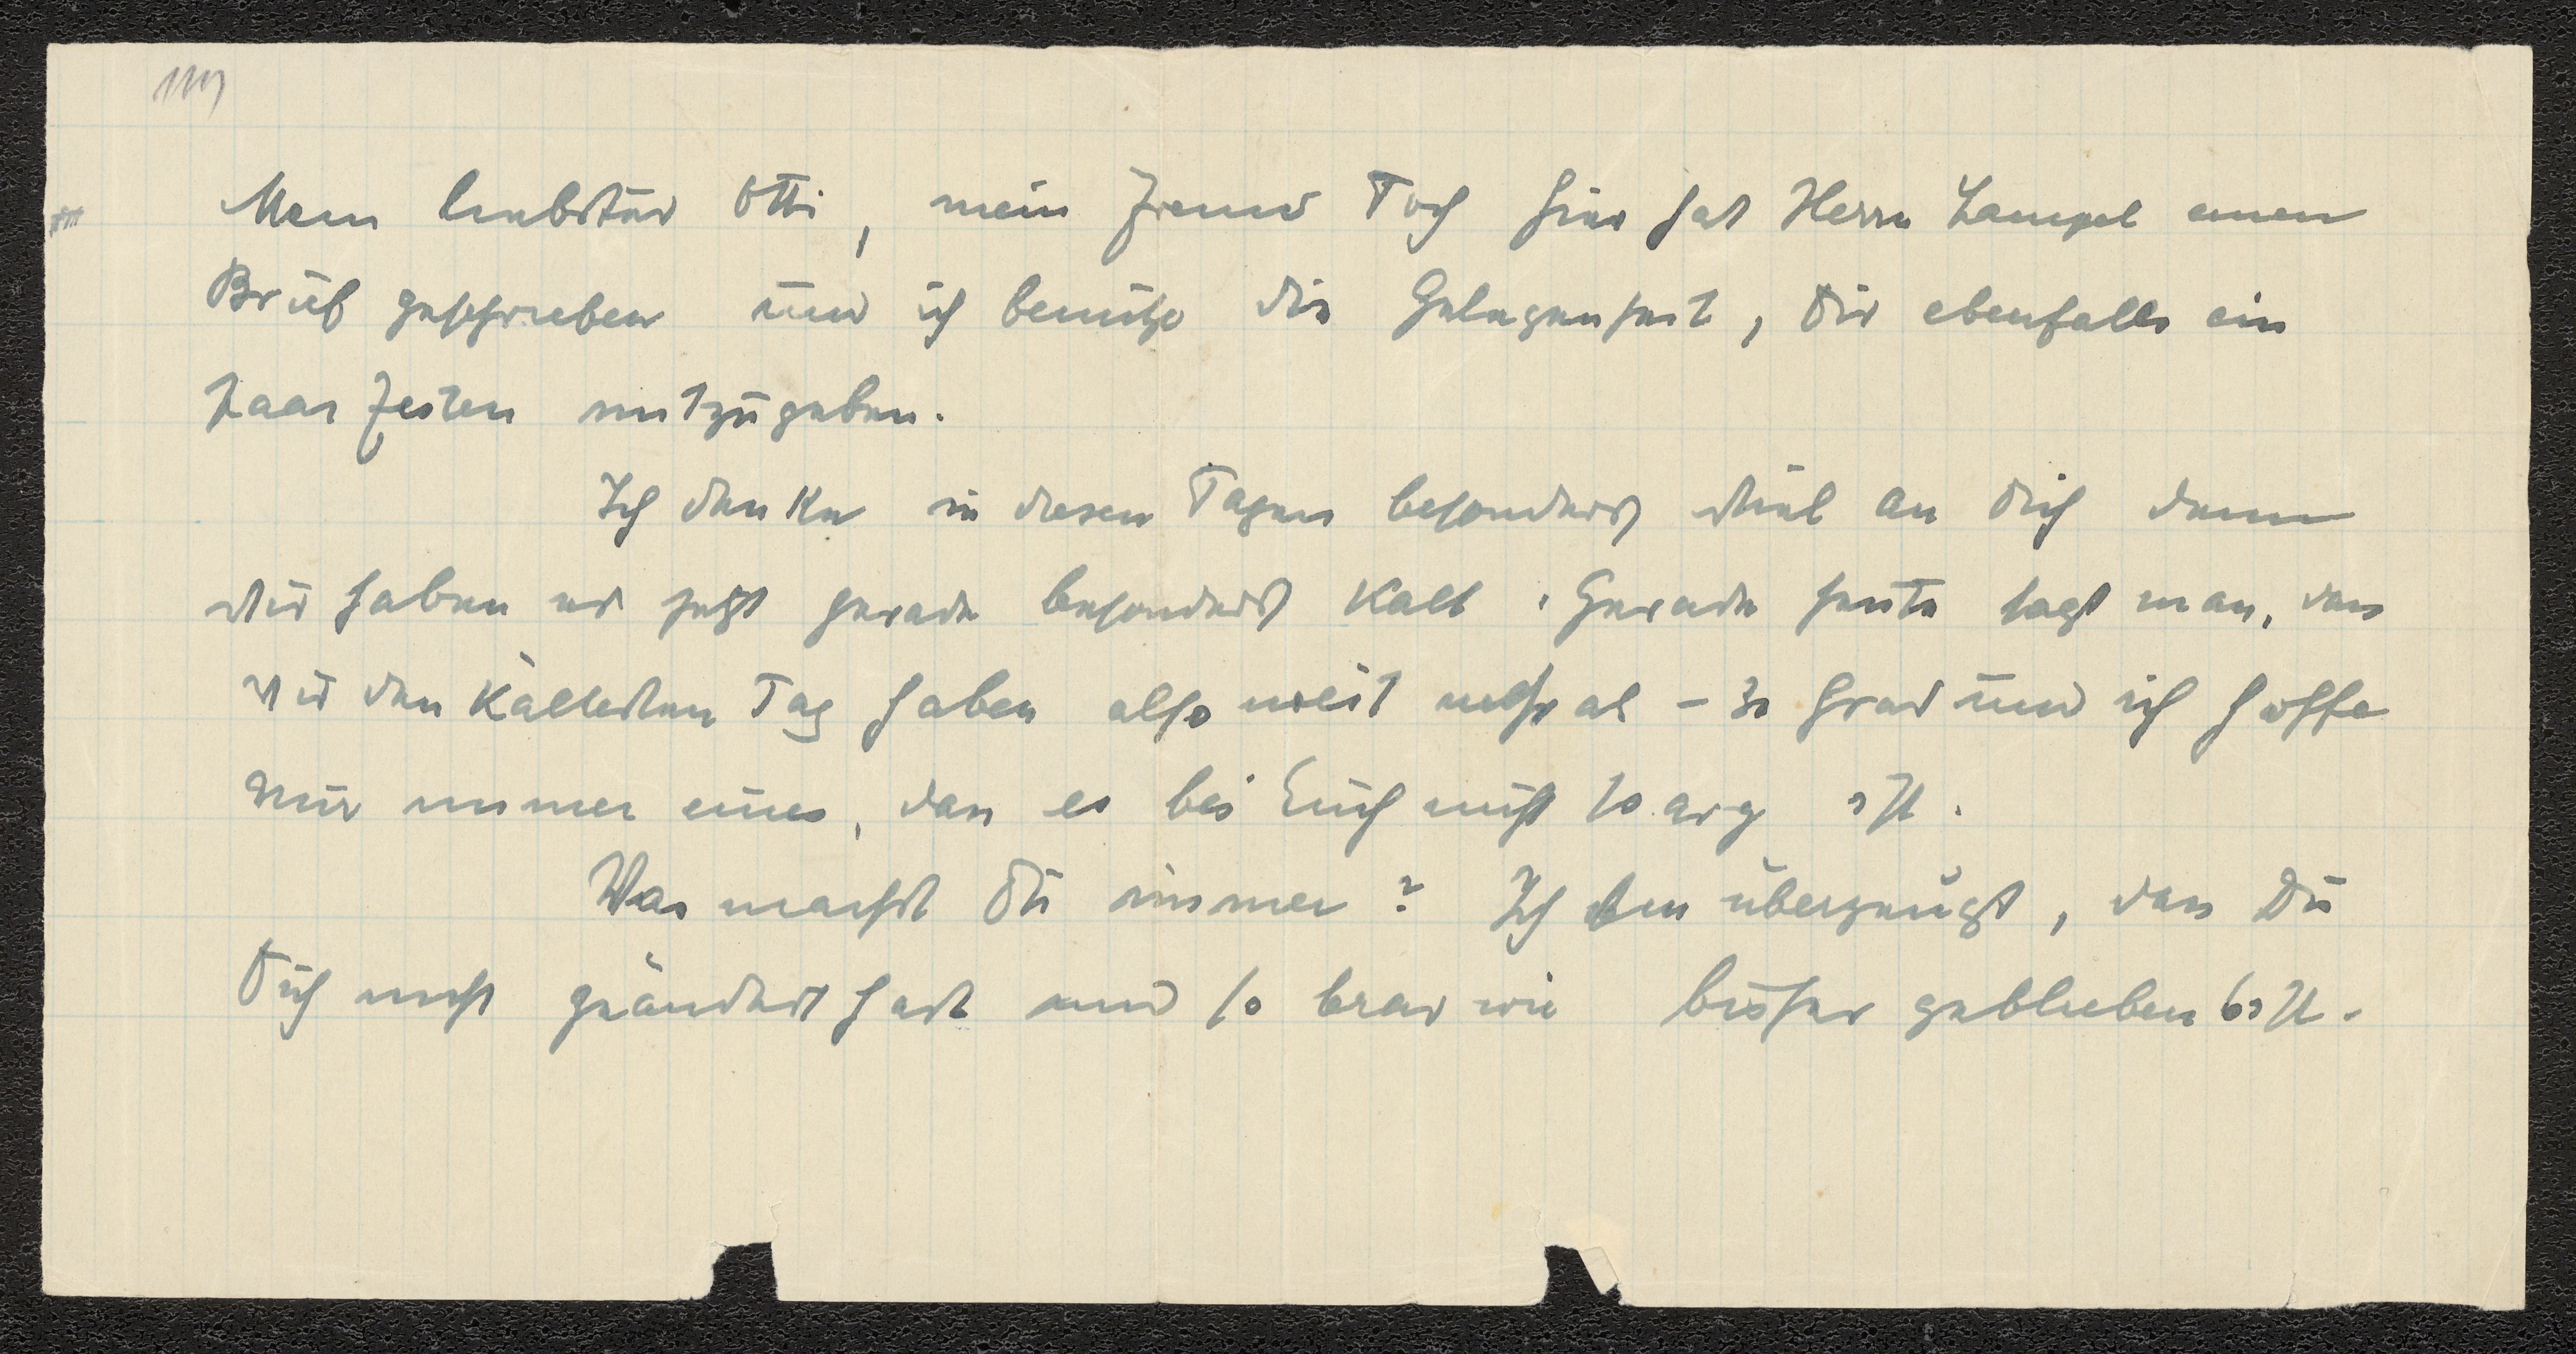 Mein liebster Otti, mein Freund Toch hier hat Herrn Lampel einen
Brief geschrieben und ich benutze die Gelegenheit, Dir ebenfalls ein
paar Zeilen mitzugeben.
Ich denke in diesen Tagen besonders viel an Dich denn
wir haben es jetzt gerade besonders kalt. Gerade heute sagt man, dass
wir den kältesten Tag haben also weit mehr als - 30 Grad und ich hoffe
nur immer eines, dass es bei Euch nicht so arg ist.
Was machst Du immer? Ich bin überzeugt, dass Du
Dich nicht geändert hast und so brav wie bisher geblieben bist.